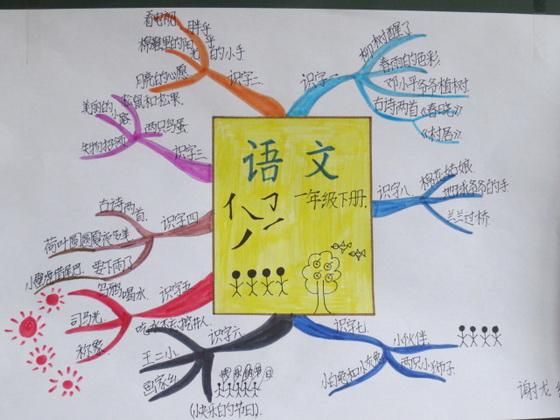 语文
一年级下册
识字一
柳树醒了
春雨的色彩
邓小平爷爷植树
古诗两首《春晓》
《村居》
识字二
看电视
胖乎乎的小手
棉鞋里的阳光
月亮的心愿
识字三
松鼠和松果
美丽的小路
两只鸟蛋
失物招领
识字四
古诗两首
荷叶圆圆
夏夜多美
要下雨了
小壁虎借尾巴
识字五
乌鸦喝水
司马光
称象
识字六
吃水不忘挖井人
王二小
画家乡
(快乐的节日)
识字七
小伙伴
两只小狮子
小白兔和小灰兔
识字八
棉花姑娘
地球爷爷的手
兰兰过桥
谢才龙